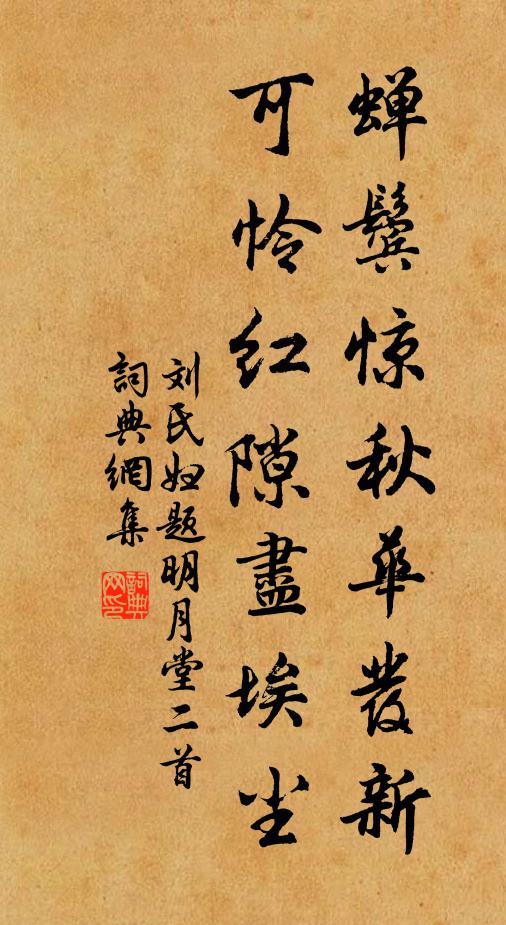 蝉鬓惊秋華发新
可怜红隙盡埃尘
刘氏妇题明月堂二首
詞典網集
詞典网印